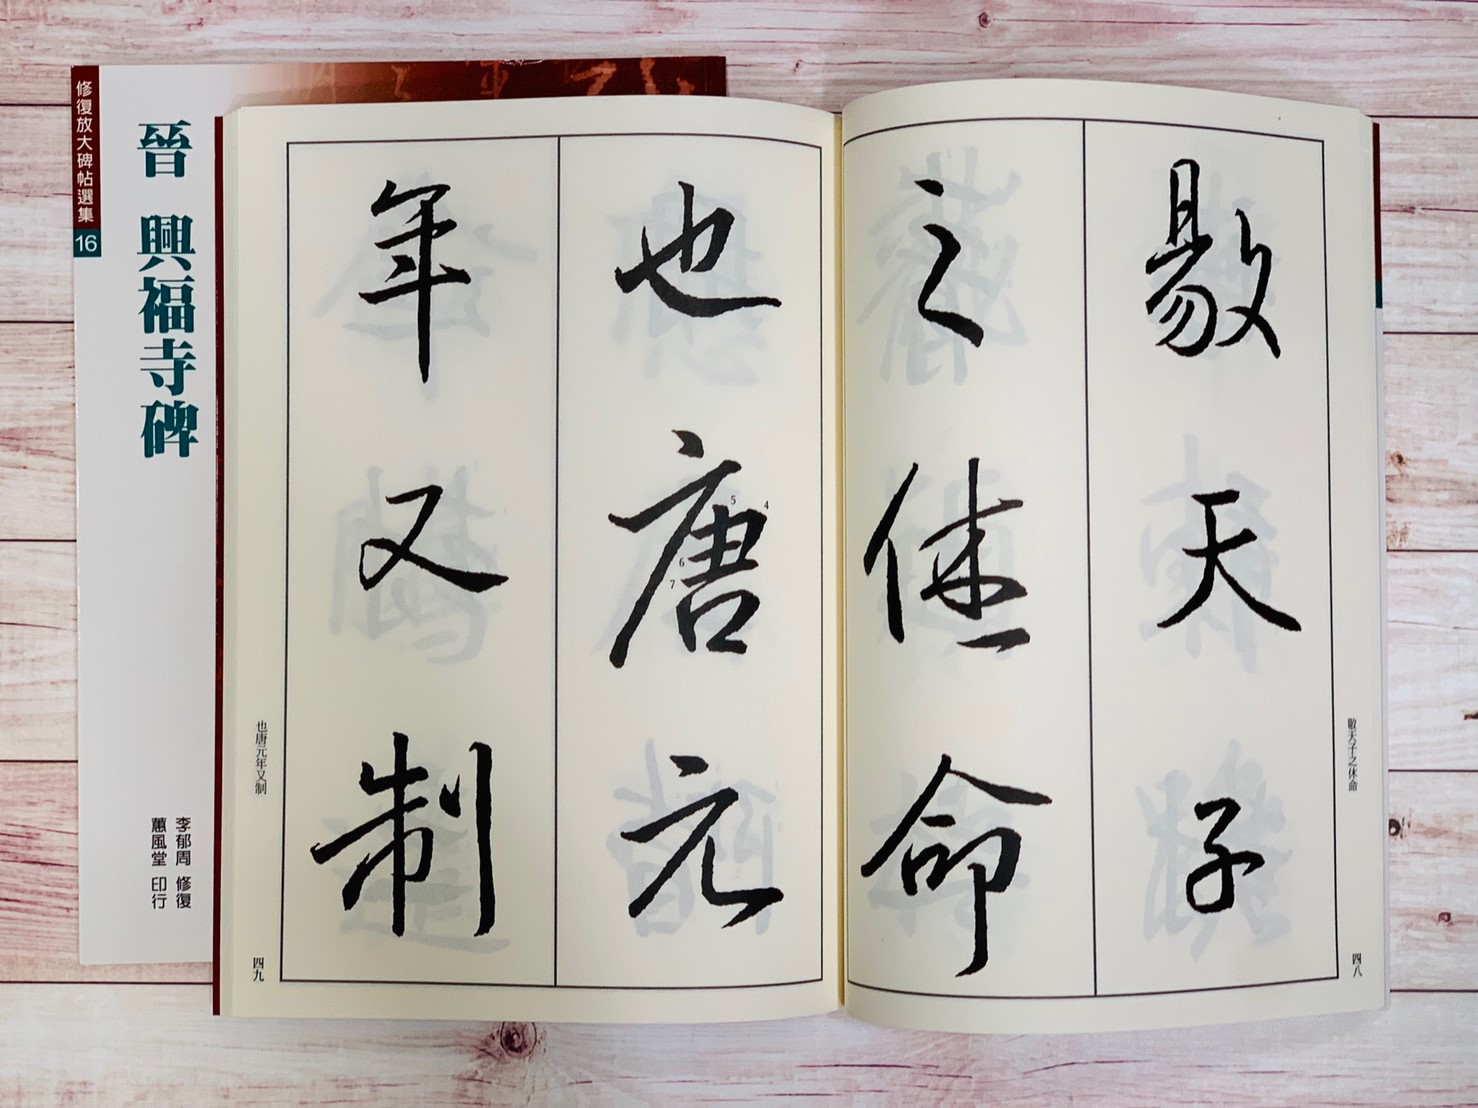 敭天子
之休命
敭天子之休命
四八
也唐元
5
4
6
7
年又制
也唐元年又制
四九
修復放大碑帖選集
16
晉 興福寺碑
李郁周 修復
蕙風堂 印行